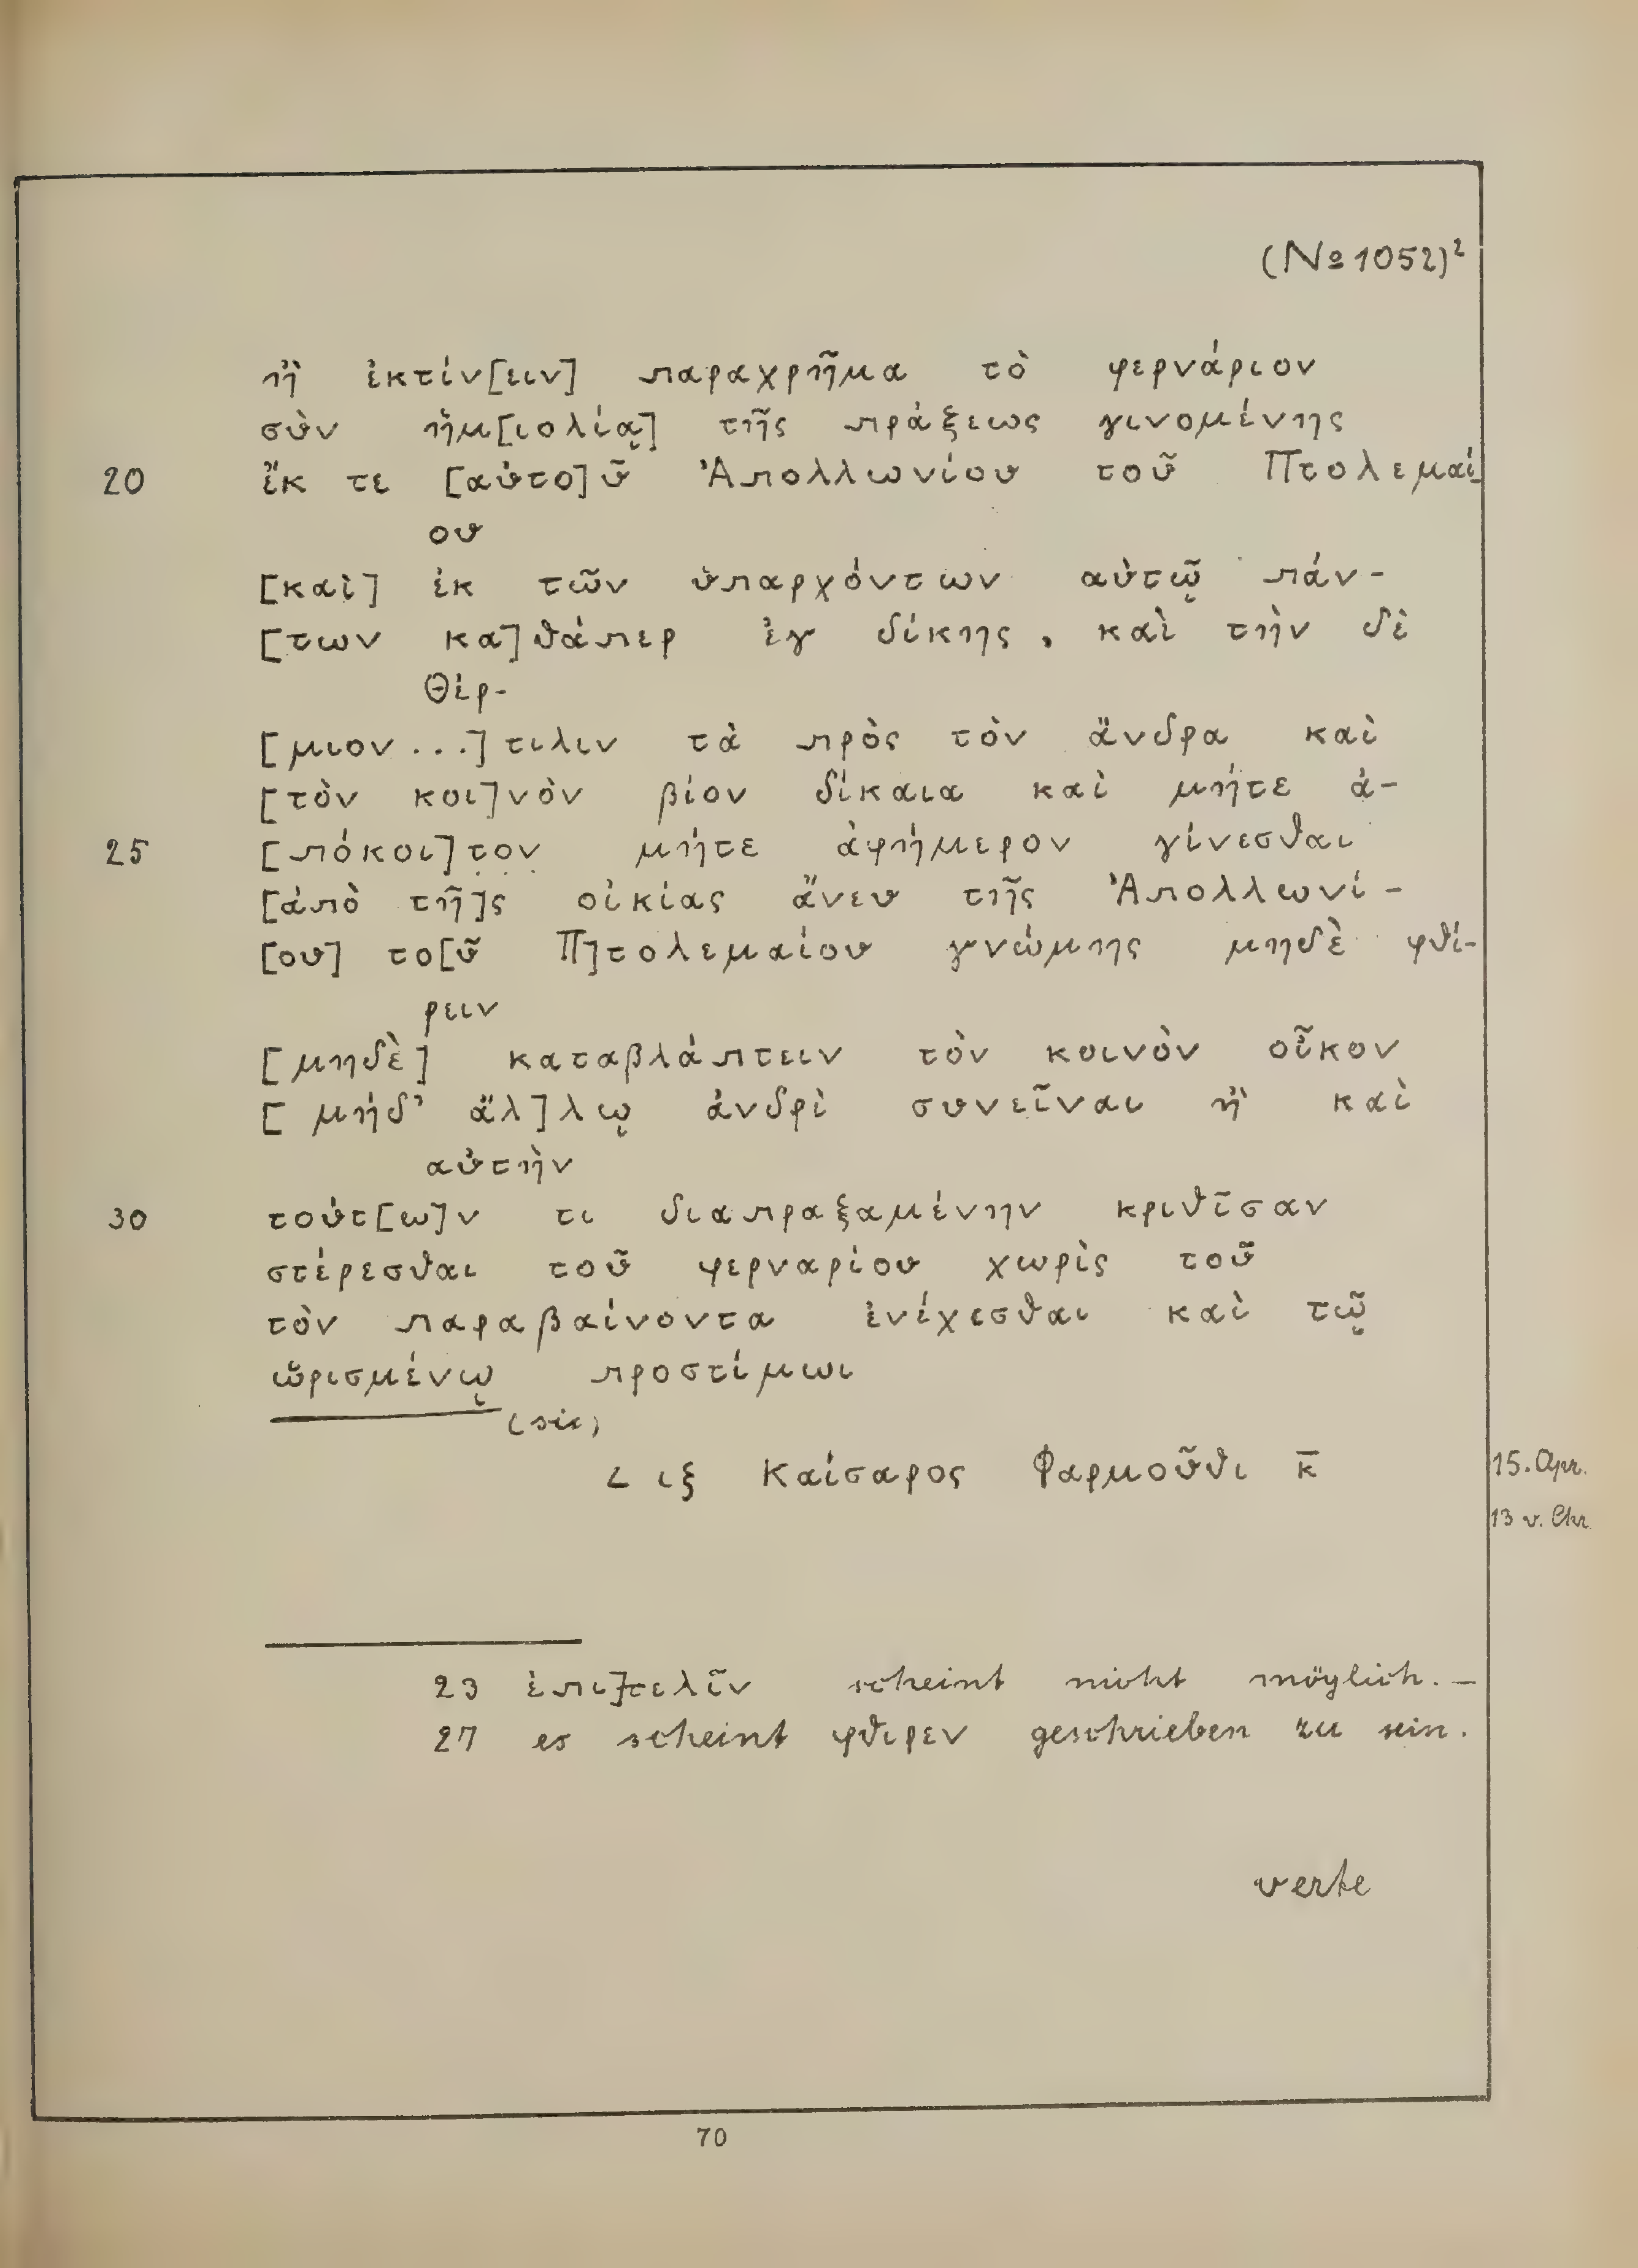 (№ 1052)²
ἢ ἐκτίν[ειν] παραχρῆμα τὸ φερνάριον
σὺν ἡμ[ιολίᾳ] τῆς πράξεως γινομένης
20 ἔκ τε [αὐτο]ῦ Ἀπολλωνίου τοῦ Πτολεμαί
ου
[καὶ] ἐκ τῶν ὑπαρχόντων αὐτῷ πάν-
[των κα]θάπερ ἐγ δίκης, καὶ τὴν δὲ
Θέρ-
[μιον ...]τιλιν τὰ πρὸς τὸν ἄνδρα καὶ
[τὸν κοι]νὸν βίον δίκαια καὶ μήτε ἀ-
25 [πόκοι]τ̣ο̣ν̣ μήτε ἀφήμερον γίνεσθαι
[ἀπὸ τῆ]ς οἰκίας ἄνευ τῆς Ἀπολλωνί-
[ου] το[ῦ Π]τολεμαίου γνώμης μηδὲ φθί-
ρειν
[μηδὲ] καταβλάπτειν τὸν κοινὸν οἶκον
[μήδ' ἄλ]λῳ ἀνδρὶ συνεῖναι ἢ καὶ
αὐτὴν
30 τούτ[ω]ν τι διαπραξαμένην κριθῖσαν
στέρεσθαι τοῦ φερναρίου χωρὶς τοῦ
τὸν παραβαίνοντα ἐνέχεσθαι καὶ τῷ
ὡρισμένῳ προστίμωι
(sic)
L ιξ Καίσαρος Φαρμοῦθι κ̅ 15. Apr.
13 v. Chr.
23 ἐπι]τελῖν scheint nicht möglich. —
27 es scheint φθιρεν geschrieben zu sein.
verte
70